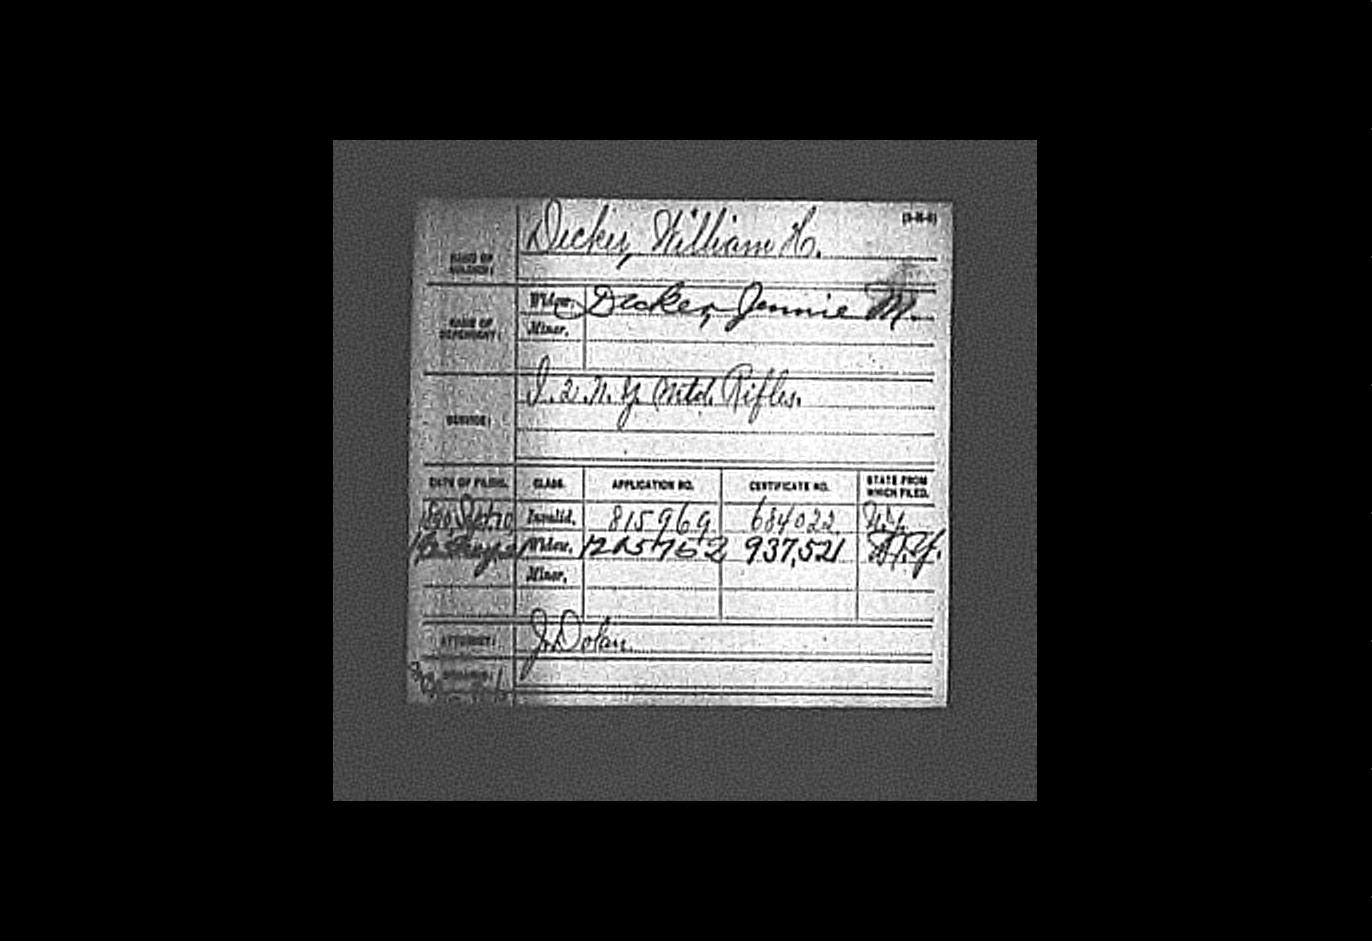 (3-H-6)
NAME OF SOLDIER: Decker, William H.
NAME OF DEPENDENT: Widow, Decker, Jennie M.
Minor,
SERVICE: I. 2. N. Y. Mtd. Rifles.
DATE OF FILING. CLASS. APPLICATION NO. CERTIFICATE NO. STATE FROM WHICH FILED.
1890, Sept. 10 Invalid, 815969 684022 N.Y.
Widow, 1205752 937,521 N.Y.
Minor,
ATTORNEY: J. Dolan
REMARKS: